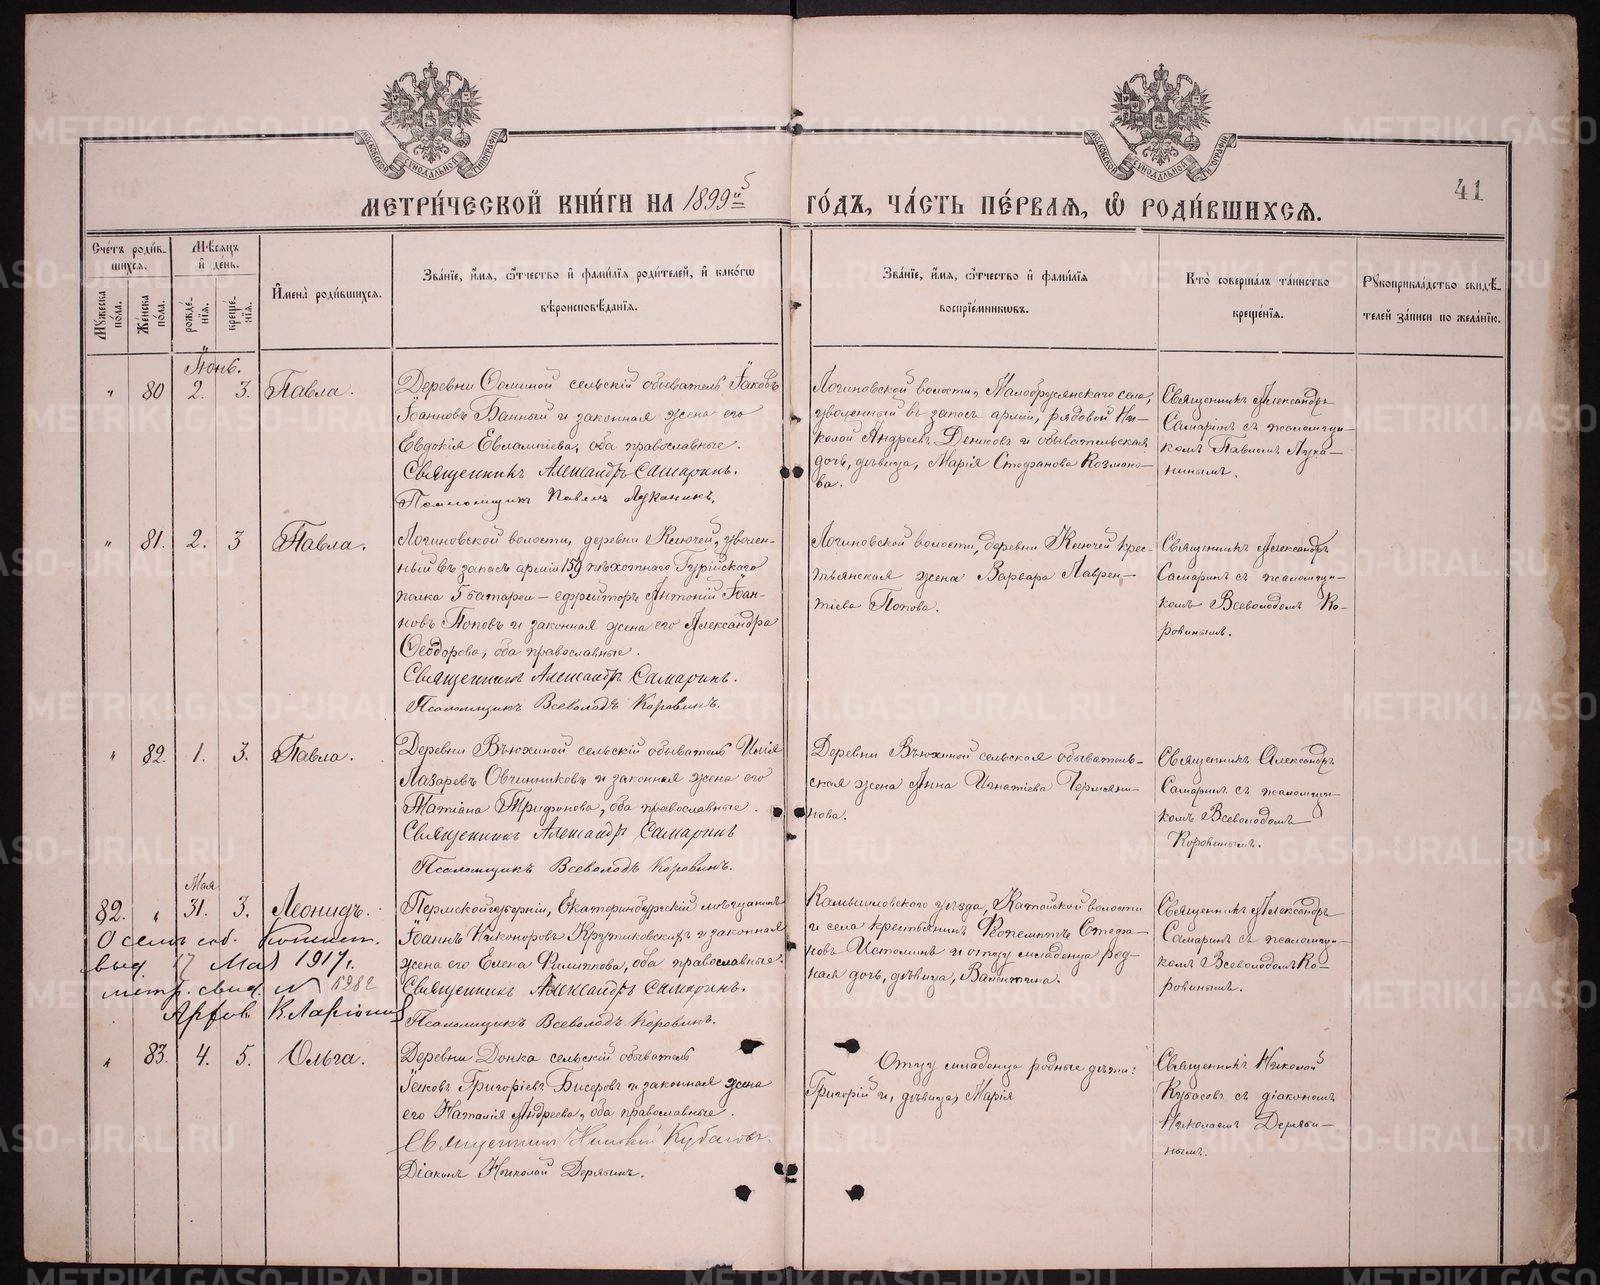 МЕТРИ́ЧЕСКОЙ КНИ́ГИ НА 1899й
ГО́ДЪ, ЧА́СТЬ ПЕ́РВАЯ, Ѡ РОДИ́ВШИХСЯ.
41
Сче́тъ роди́в-
шихся.
Мꙋжеска
по́ла.
Же́нска
по́ла.
Мѣ́сяцъ
и҆ де́нь.
рожде́-
нїя.
креще́-
нїя.
И҆мена̀ роди́вшихся.
Зва́нїе, и҆́мя, ѻ҆́тчество и҆ фами́лїя роди́телей, и҆ како́гѡ
вѣроисповѣ́данїя.
Зва́нїе, и҆́мя, ѻ҆́тчество и҆ фами́лїя
воспрїе́мникѡвъ.
Кто̀ соверша́лъ та́инство
креще́нїя.
Рꙋкоприкла́дство свидѣ́-
телей за́писи по жела́нїю.
Іюнь.
" 80 2. 3. Павла.
Деревни Соминой сельскій обыватель Іаковъ
Іоанновъ Банный и законная жена его
Евдокія Евлампіева, оба православные.
Священникъ Александръ Самаринъ.
Псаломщикъ Павелъ Луканинъ.
Логиновской волости, Малобрусянскаго села,
уволенный въ запасъ арміи, рядовой Ни-
колай Андреевъ Деников и обывательская
дочь, дѣвица, Марія Стефанова Козмано-
ва.
Священникъ Александръ
Самаринъ съ псаломщи-
комъ Павломъ Лука-
нинымъ.
" 81. 2. 3 Павла.
Логиновской волости, деревни Ключей, уволен-
ный въ запасъ арміи 159 пѣхотнаго Гурійскаго
полка 5 батареи - ефрейторъ Антоній Іоан-
новъ Поповъ и законная жена его Александра
Ѳеодорова, оба православные.
Священникъ Александръ Самаринъ.
Псаломщикъ Всеволодъ Коровинъ.
Логиновской волости, деревни Ключей крес-
тьянская жена Варвара Лаврен-
тіева Попова.
Священникъ Александръ
Самаринъ съ псаломщи-
комъ Всеволодомъ Ко-
ровинымъ.
" 82. 1. 3. Павла.
Деревни Вьюхиной сельскій обыватель Илія
Лазаревъ Овчинниковъ и законная жена его
Татіана Трифонова, оба православные.
Священникъ Александръ Самаринъ
Псаломщикъ Всеволодъ Коровинъ.
Деревни Вьюхиной сельская обыватель-
ская жена Анна Игнатіева Чермяни-
нова.
Священникъ Александръ
Самаринъ съ псаломщи-
комъ Всеволодомъ
Коровинымъ.
Мая
82. " 31. 3. Леонидъ.
О семъ
выд. 17 Мая 1917 г.
метр. свид. №
Пермской губерніи, Екатеринбургскій мѣщанинъ
Іоаннъ Никоноровъ Крутиковскихъ и законная
жена его Елена Филиппова, оба православные.
Священникъ Александръ Самаринъ.
Псаломщикъ Всеволодъ Коровинъ.
Камышловскаго уѣзда, Катайской волости
и села крестьянинъ Стефа-
новъ Истоминъ и отцу младенца род-
ная дочь, дѣвица, Валентина.
Священникъ Александръ
Самаринъ съ псаломщи-
комъ Всеволодомъ Ко-
ровинымъ.
" 83. 4. 5. Ольга.
Деревни Донка сельскій обыватель
Іаковъ Григоріевъ Бисеровъ и законная жена
его Наталія Андреева, оба православные.
Священникъ Николай Кубасовъ.
Діаконъ Николай Дерябинъ.
Отцу младенца родные дѣти:
Григорій и, дѣвица, Марія
Священникъ Николай
Кубасовъ съ діакономъ
Николаемъ Деряби-
нымъ.
METRIKI.GASO-URAL.RU